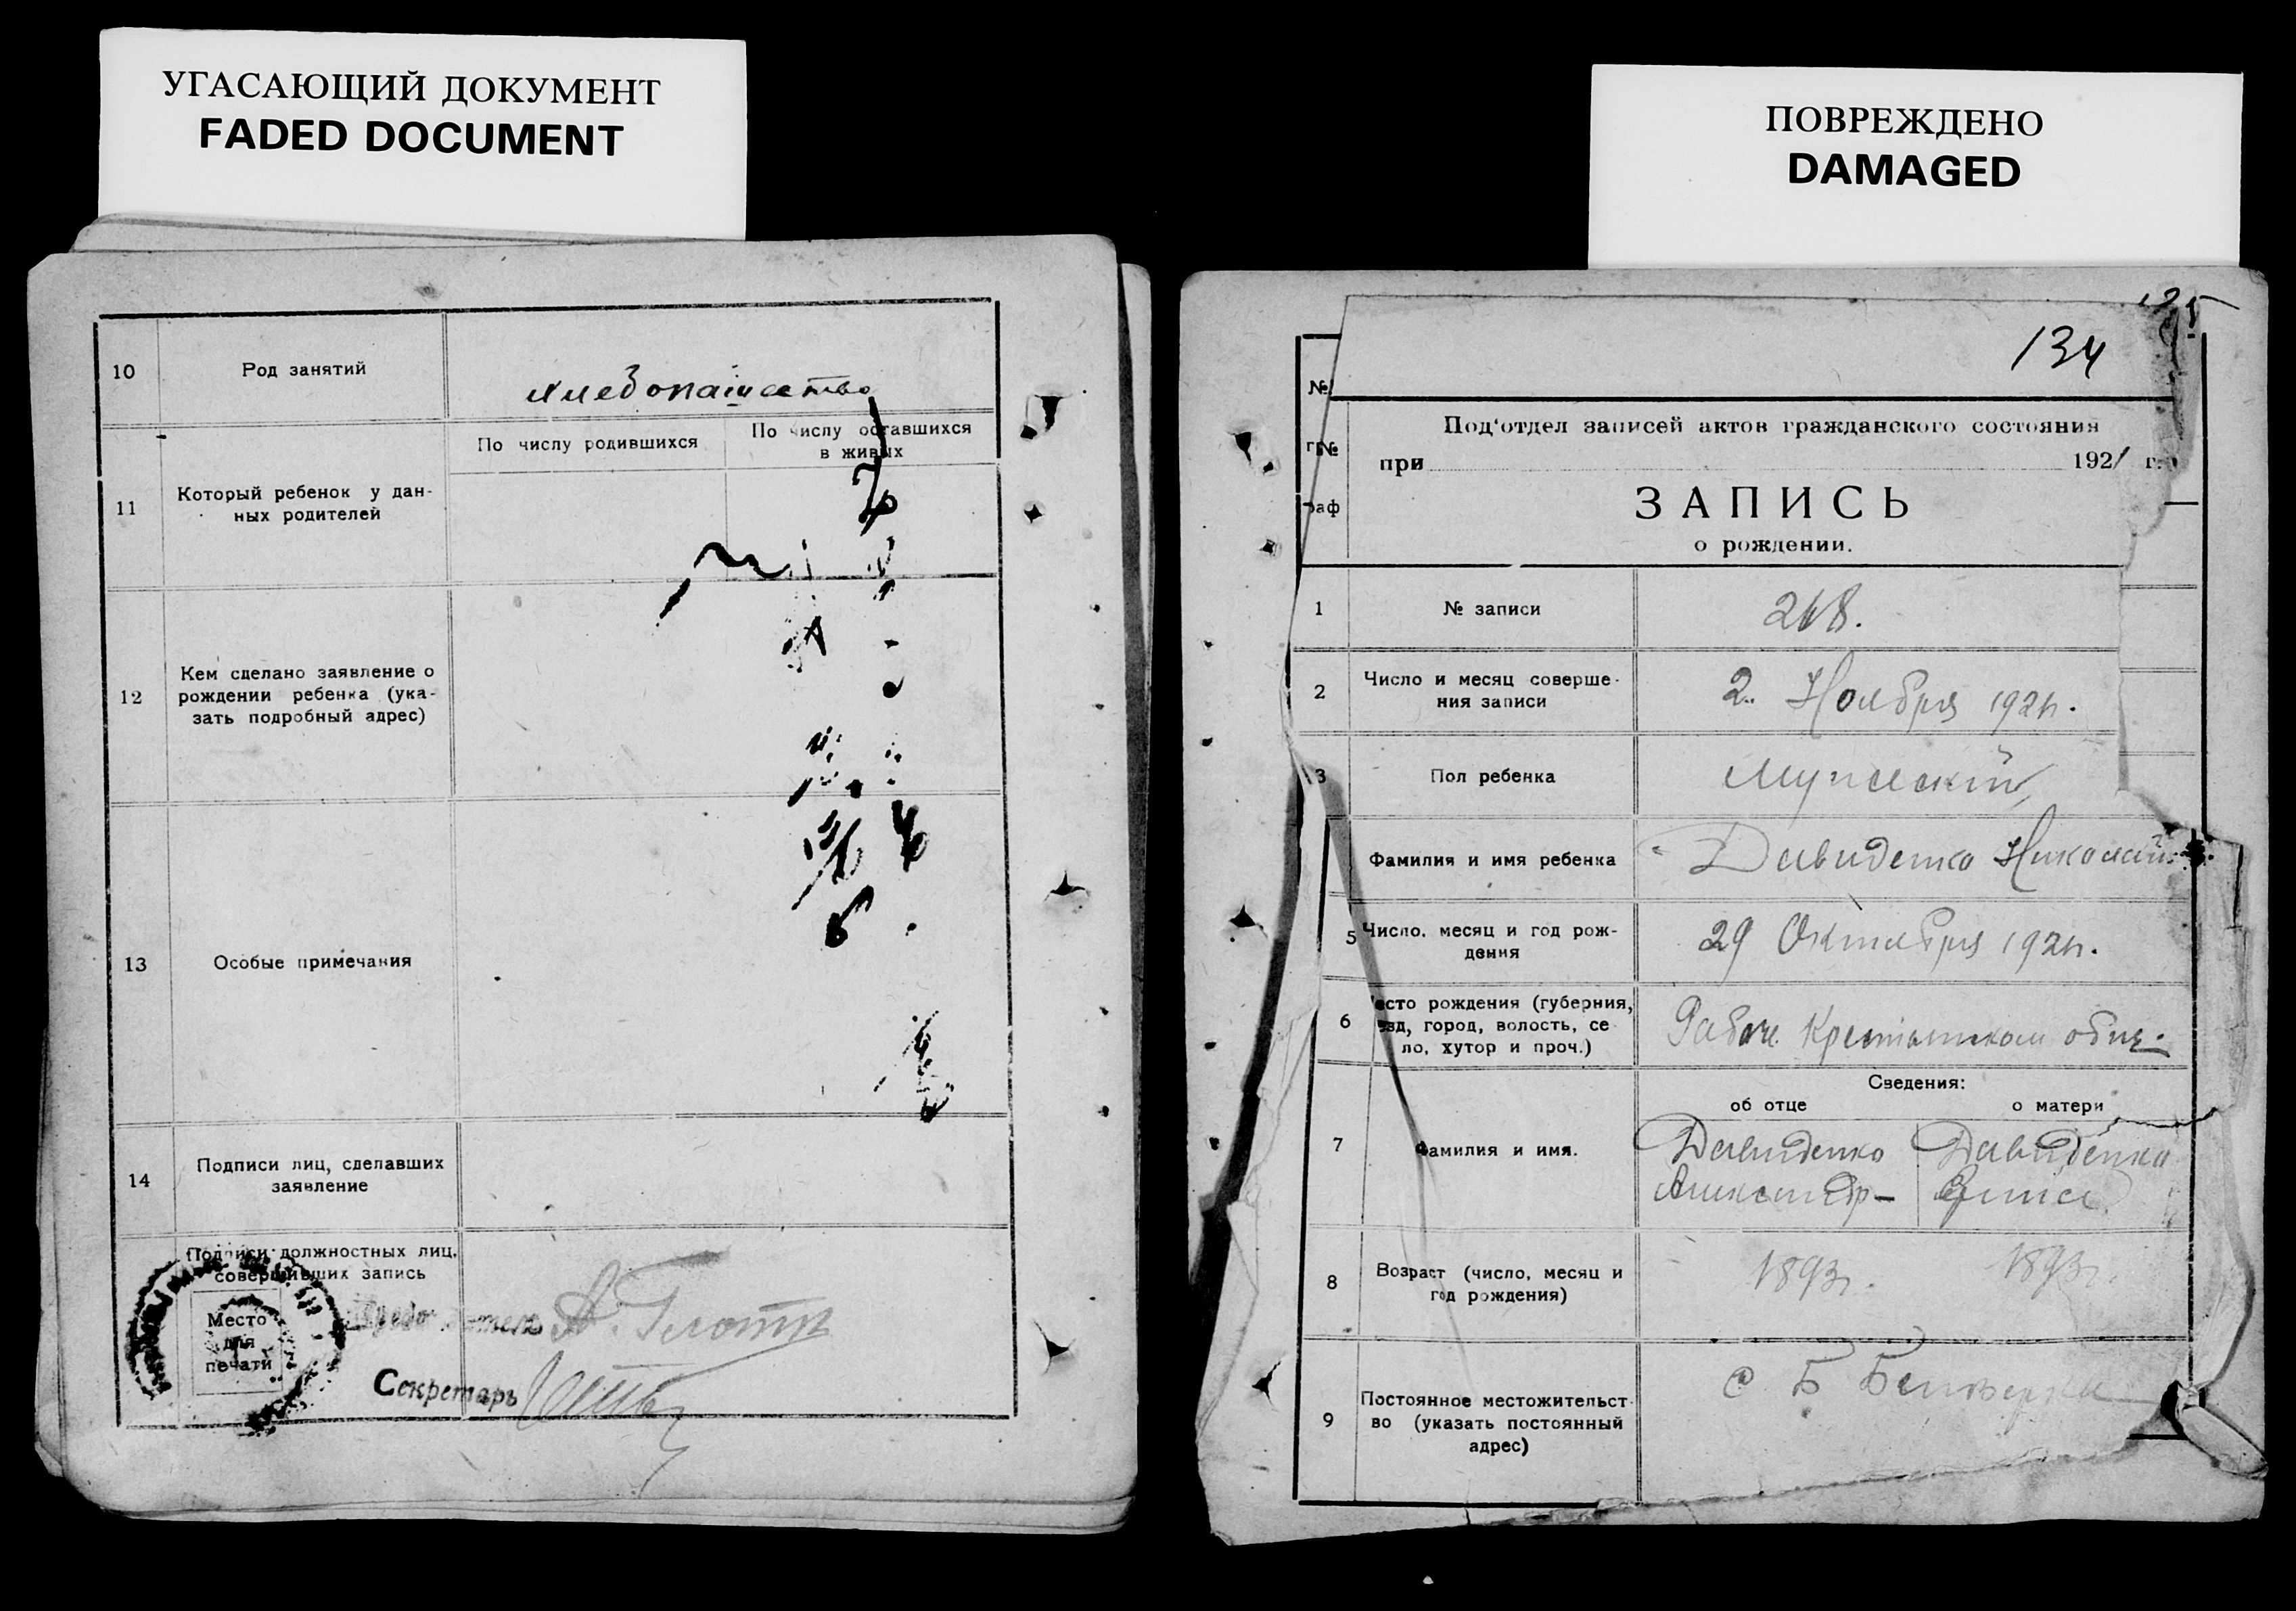 УГАСАЮЩИЙ ДОКУМЕНТ
FADED DOCUMENT
10
Род занятий
хлебопашество
11
Который ребенок у дан-
ных родителей
По числу родившихся
По числу оставшихся
в живых
12
Кем сделано заявление о
рождении ребенка (ука-
зать подробный адрес)
13
Особые примечания
14
Подписи лиц, сделавших
заявление
Подписи должностных лиц,
совершивших запись
Место
для
печати
А.
Секретарь
ПОВРЕЖДЕНО
DAMAGED
134
№
Под'отдел записей актов гражданского состояния
№
при 1921 г.
раф
ЗАПИСЬ
о рождении.
1
№ записи
268.
2
Число и месяц соверше-
ния записи
2. Ноября 1921г.
3
Пол ребенка
Мужеский
Фамилия и имя ребенка
Давиденко Николай
5
Число, месяц и год рож-
дения
29 Октября 1921г.
6
есто рождения (губерния,
езд, город, волость, се
ло, хутор и проч.)
Рабоче Крестьянском общ.
Сведения:
об отце
о матери
7
Фамилия и имя.
Давиденко
Александр
Давиденко
8
Возраст (число, месяц и
год рождения)
1893г.
1893г.
9
Постоянное местожительст
во (указать постоянный
адрес)
с. Б Белозерка